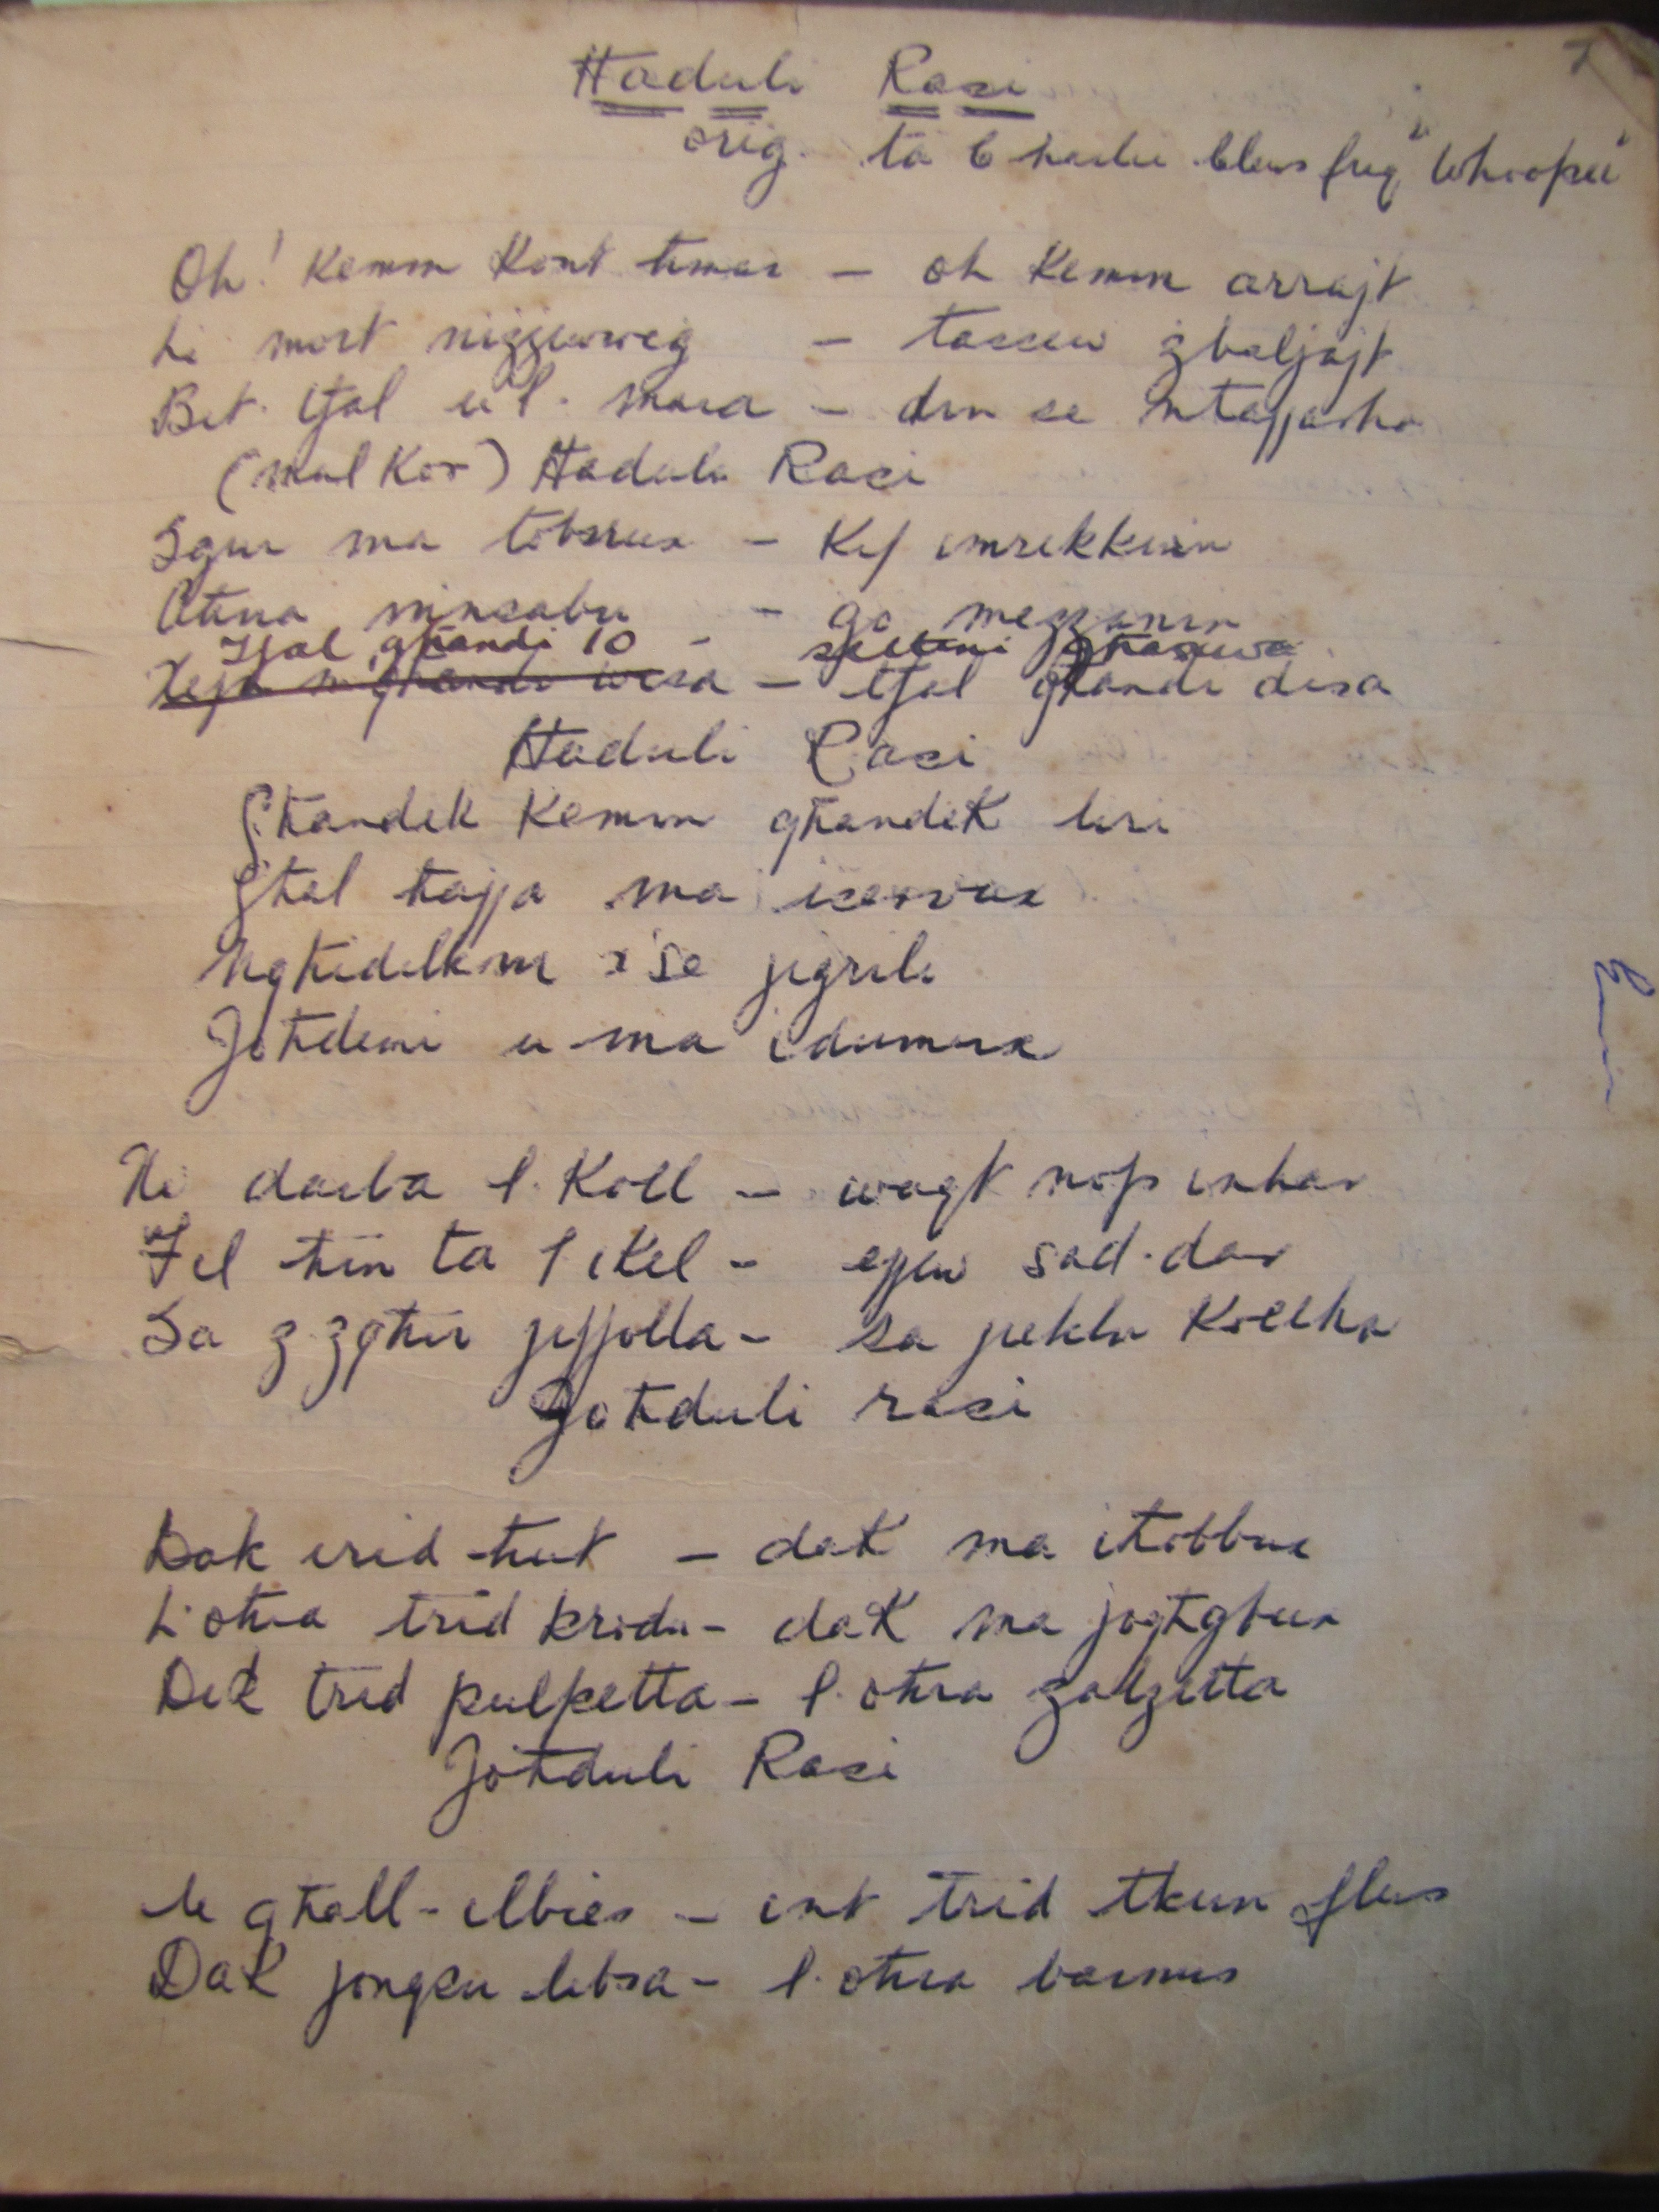 7
Ħaduli Rasi
orig. ta B fuq "Whoopee"
Oh! Kemm Kont hemm – oh Kemm arrajt
Li mort niżżewweġ – tassew żbaljajt
Bit-tfal u l-mara – din se ntajjarha
(mal Kor) Ħaduli Rasi
Sgur ma tobsrux – Kif imrekkin
Ahna ninsabu – go mezzanin
Tfal għandi 10 – għasura
Xejn m'għandi wisa – tfal għandi disa
Ħaduli Rasi
Għandek Kemm għandek liri
Għal ħajja ma iservux
Ngħidilkom x'se jiġrili
Joħduni u ma idumux
Ħi darba l-Koll – waqt nofs inhar
Fil ħin ta l-ikel – ejjew sad-dar
Sa ż-żgħir jifjolla – sa jieklu Kollha
Joħduli rasi
Dak irid ħut – dak ma iħobbux
L-oħra trid brodu – dak ma jogħġbux
Dik trid pulpetta – l-oħra zalzetta
Joħduli Rasi
Le għall-ilbies – int trid tkun flus
Dak jonqsu libsa – l-oħra barnus